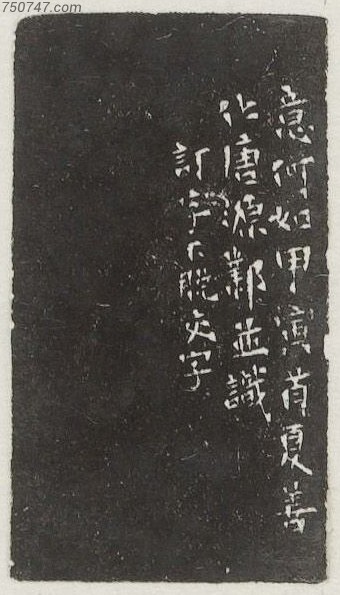 750747.com
意何如甲寅首夏善
化唐源鄴並識
訂字下脫交字